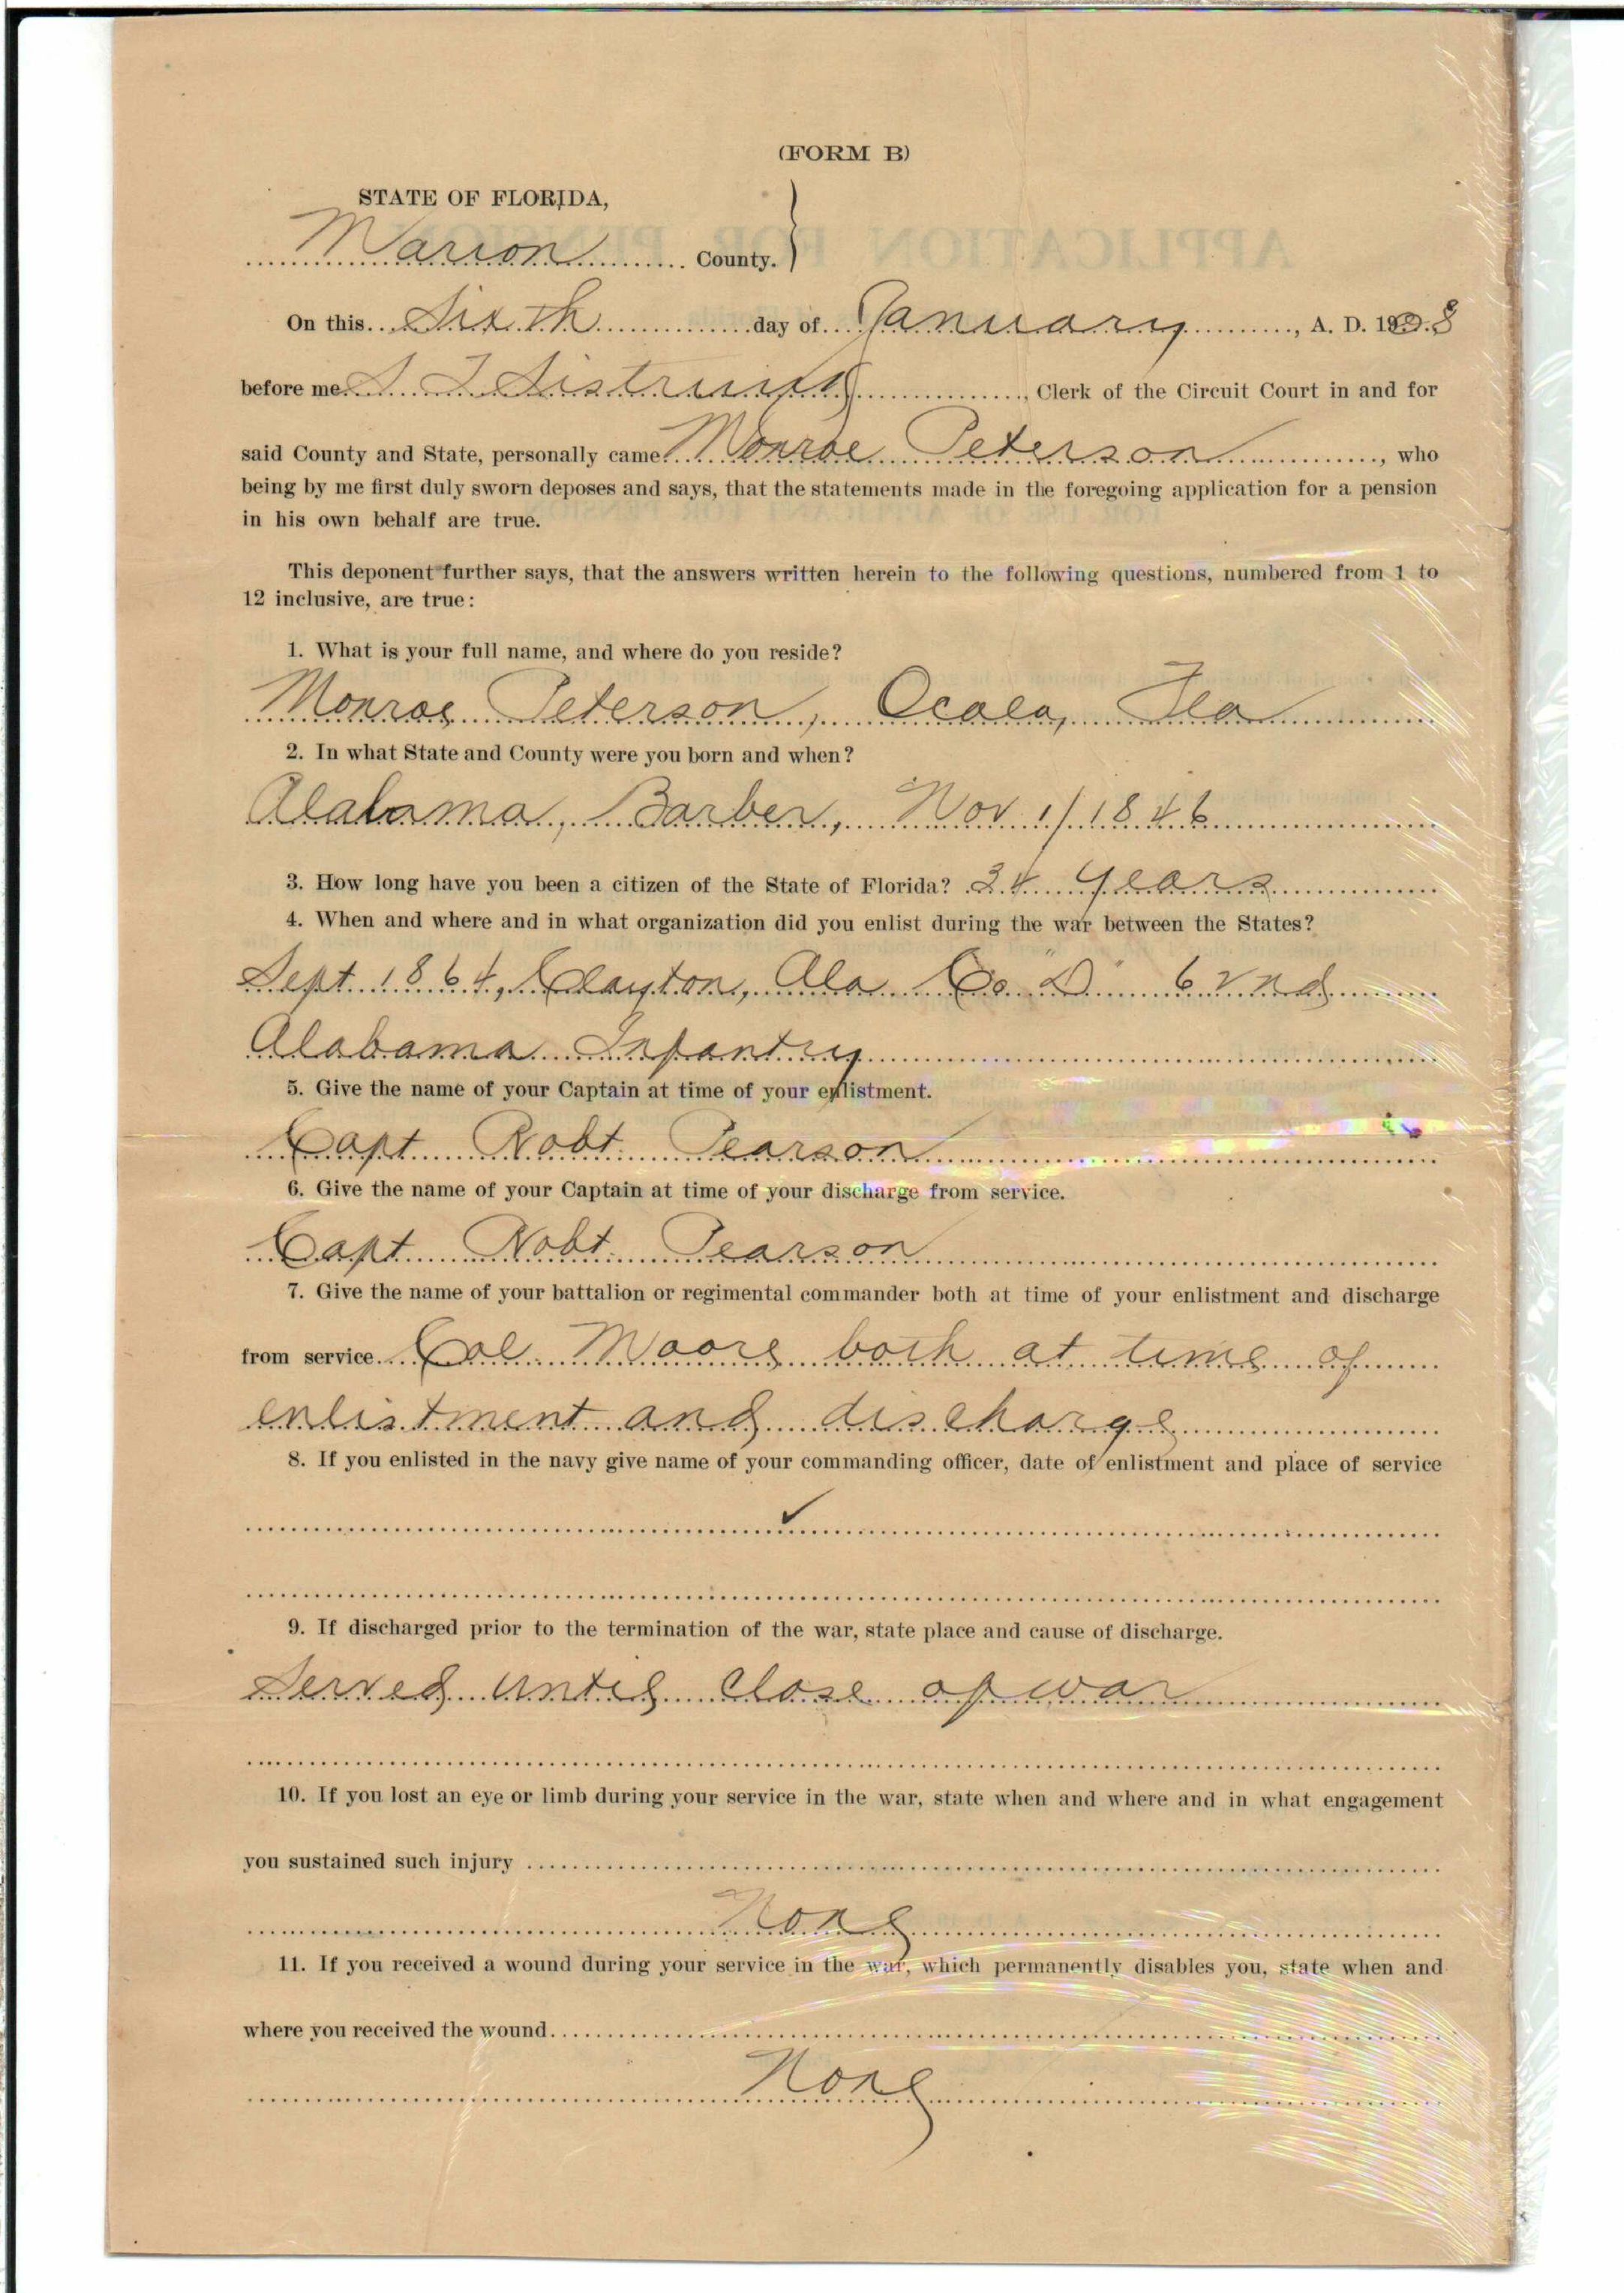 (FORM B)
STATE OF FLORIDA,
Marion County.
On this Sixth day of January, A. D. 1908
before me S. T. Sistrunk, Clerk of the Circuit Court in and for
said County and State, personally came Monroe Peterson, who
being by me first duly sworn deposes and says, that the statements made in the foregoing application for a pension
in his own behalf are true.
This deponent further says, that the answers written herein to the following questions, numbered from 1 to
12 inclusive, are true:
1. What is your full name, and where do you reside?
Monroe Peterson, Ocala, Fla
2. In what State and County were you born and when?
Alabama, Barber, Nov 1/1846
3. How long have you been a citizen of the State of Florida? 34 years
4. When and where and in what organization did you enlist during the war between the States?
Sept 1864, Clayton, Ala Co "D" 62nd
Alabama Infantry
5. Give the name of your Captain at time of your enlistment.
Capt Robt. Pearson
6. Give the name of your Captain at time of your discharge from service.
Capt Robt. Pearson
7. Give the name of your battalion or regimental commander both at time of your enlistment and discharge
from service Col Moore both at time of
enlistment and discharge
8. If you enlisted in the navy give name of your commanding officer, date of enlistment and place of service
9. If discharged prior to the termination of the war, state place and cause of discharge.
Served until close of war
10. If you lost an eye or limb during your service in the war, state when and where and in what engagement
you sustained such injury
None
11. If you received a wound during your service in the war, which permanently disables you, state when and
where you received the wound
None